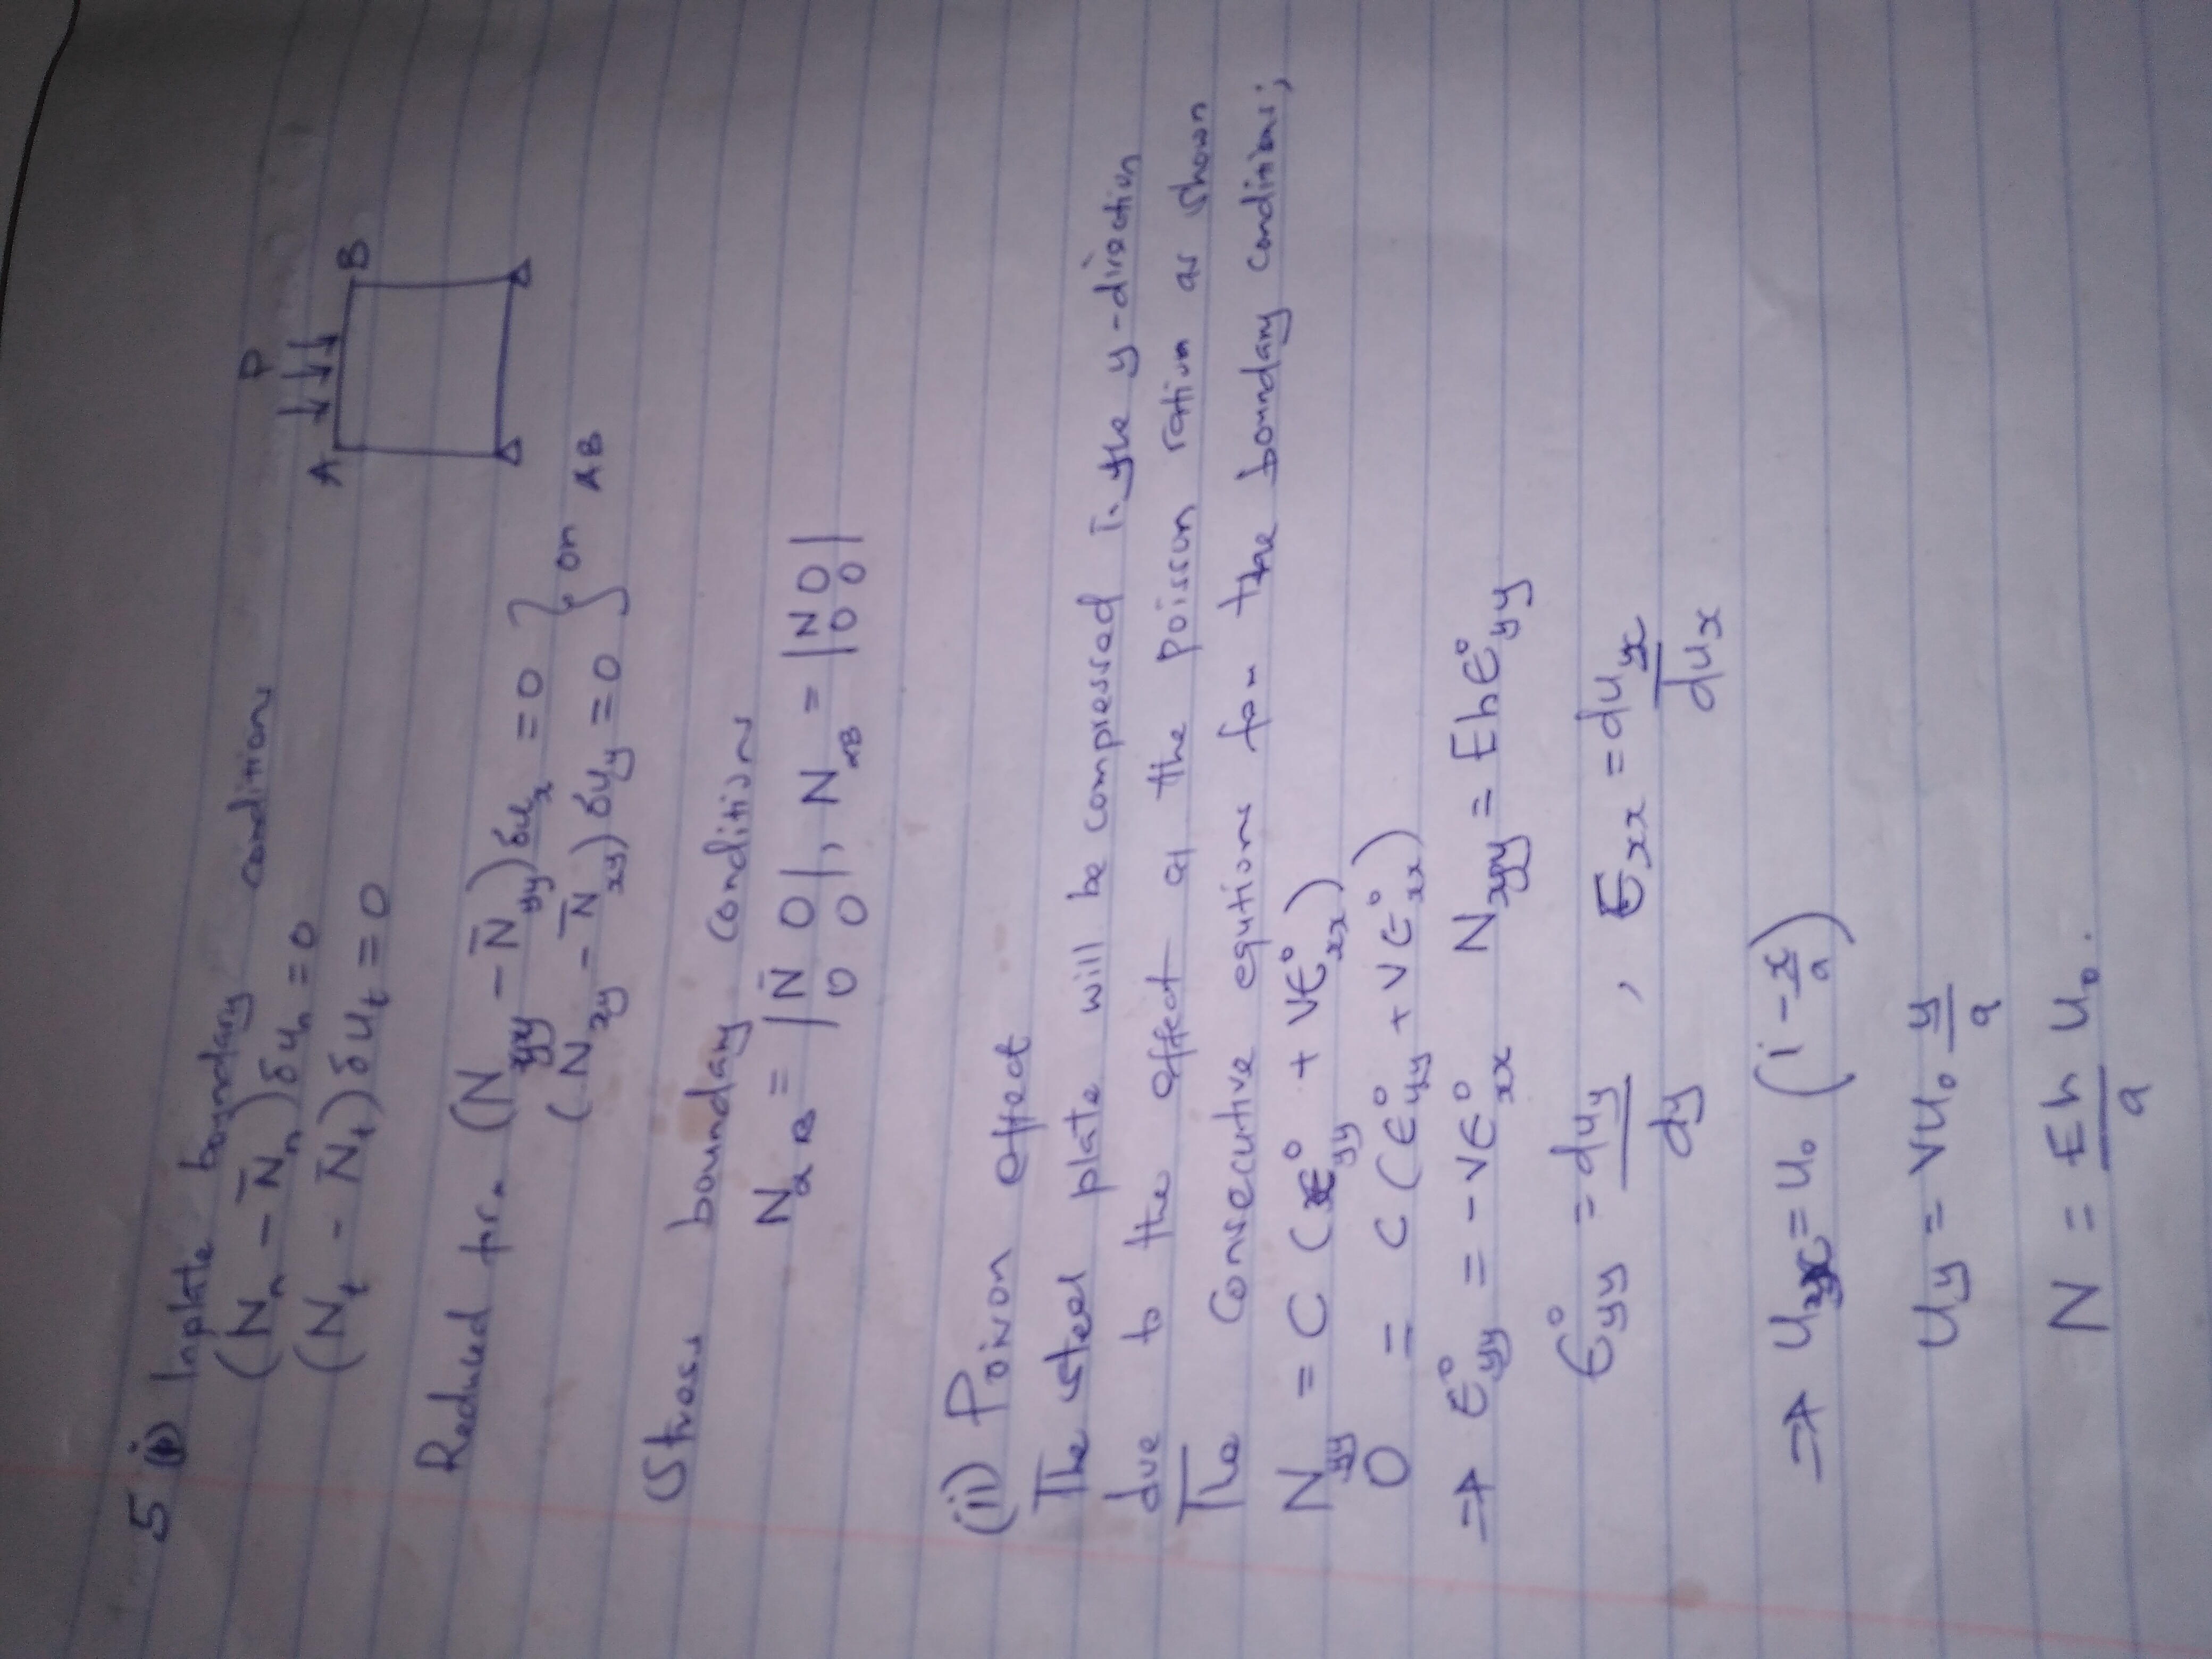 5 (i) Inplate boundary condition
(Nₙ - N̄ₙ) δuₙ = 0
(Nₜ - N̄ₜ) δuₜ = 0
P
A B
Reduced for (Nyy - N̄yy) δuₓ = 0 } on AB
(Nxy - N̄xy) δuy = 0
Stress boundary condition
NαB = |N̄ 0|, NαB = |N 0|
0 0 0 0
(ii) Poison effect
The steel plate will be compressed in the y-direction
due to the effect of the poisson ration as shown
The Consecutive equtions for the boundary conditions;
Nyy = C (ϵ°yy + vϵ°xx)
0 = C (ϵ°yy + vϵ°xx)
⇒ ϵ°yy = -vϵ°xx Nyy = Ehϵ°yy
ϵ°yy = duy/dy , ϵxx = dux/dux
⇒ Ux = U₀ (1 - x/a)
Uy = vU₀ y/a
N = Eh/a U₀.